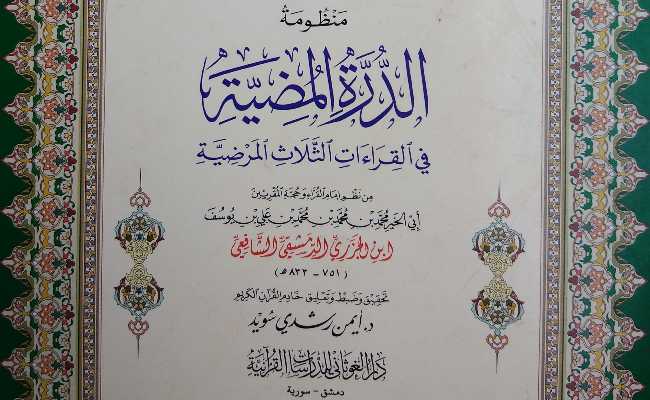 مَنْظُومَةُ
الدُّرَّةِ المُضِيَّةِ
فِي القِرَاءَاتِ الثَّلَاثِ المَرْضِيَّةِ
مِن نَظْمِ إِمَامِ القُرَّاءِ وَحُجَّةِ المُقْرِئِينَ
أَبِي الخَيْرِ مُحَمَّدِ بْنِ مُحَمَّدِ بْنِ مُحَمَّدِ بْنِ عَلِيِّ بْنِ يُوسُفَ
ابْنِ الجَزَرِيِّ الدِّمَشْقِيِّ الشَّافِعِيِّ
(٧٥١ - ٨٣٣ هـ)
تحقيق وضبط وتعليق خادم القرآن الكريم
د. أيمن رشدي سويد
دار الغوثاني للدراسات القرآنية
دمشق - سورية